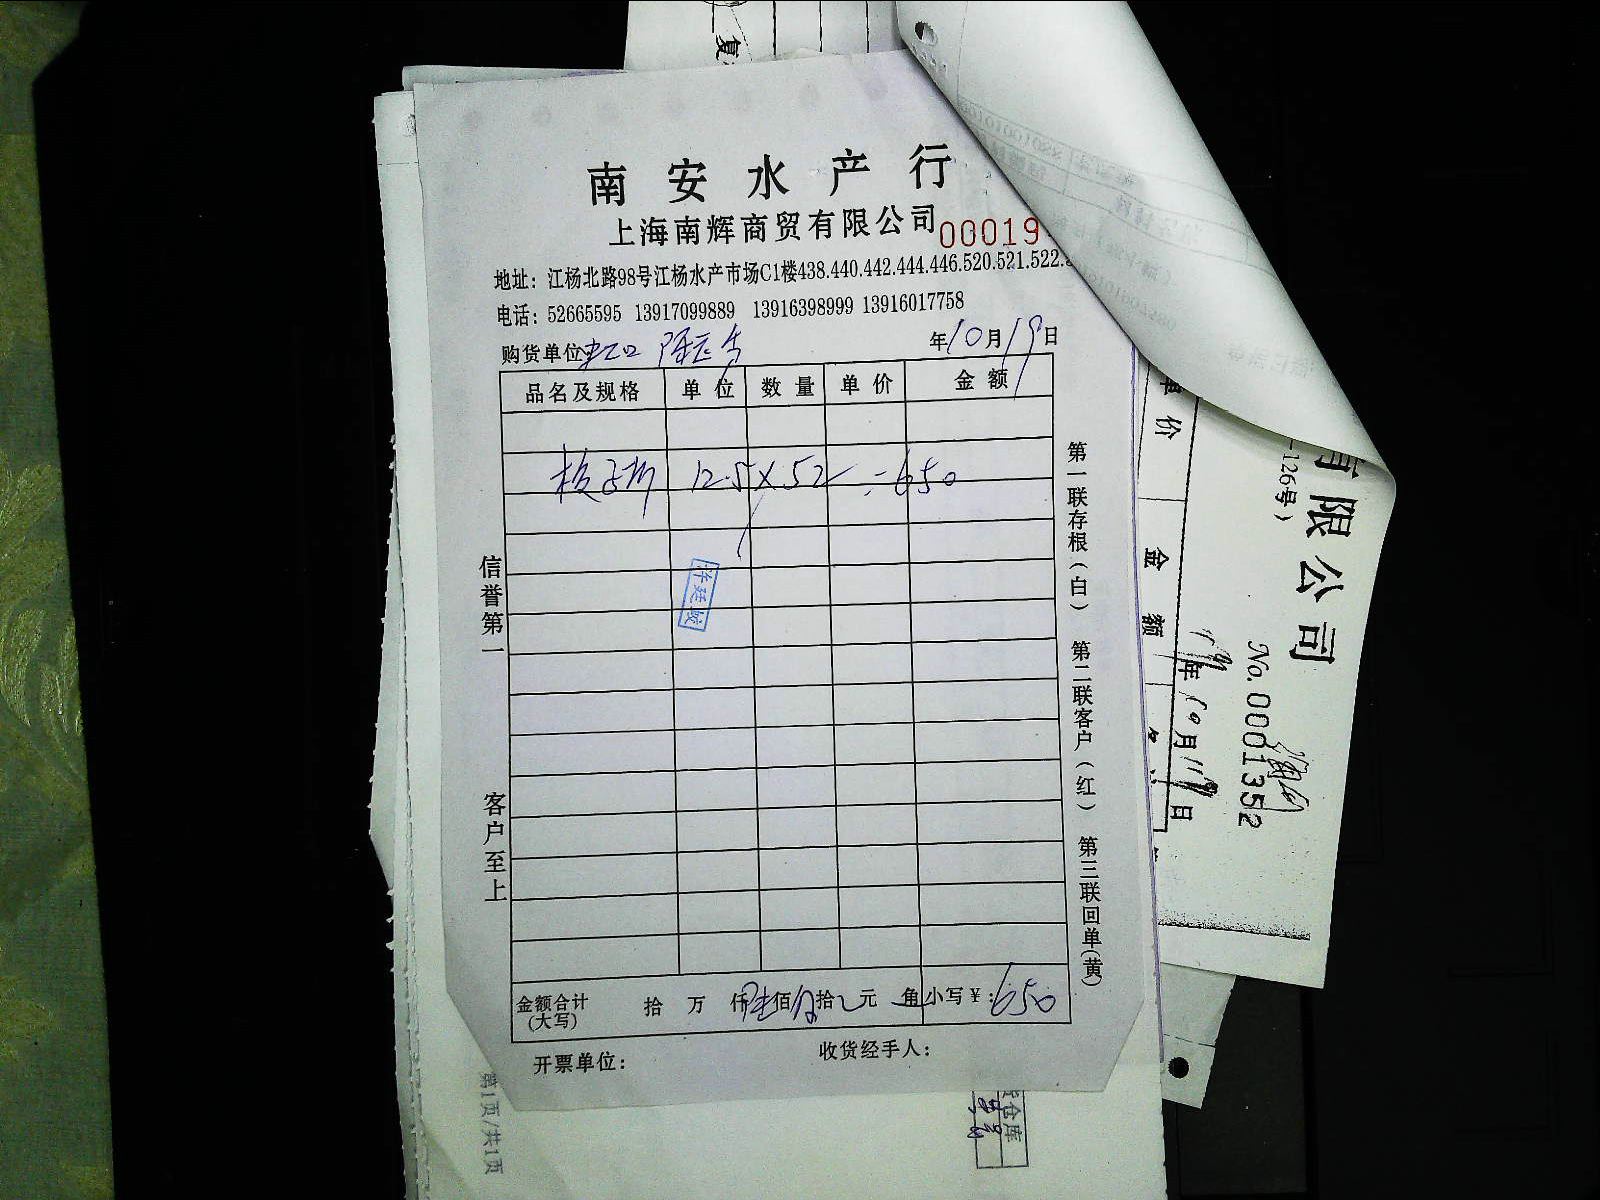 南安水产行
上海南辉商贸有限公司
00019
地址：江杨北路98号江杨水产市场C1楼438.440.442.444.446.520.521.522.
电话：52665595 13917099889 13916398999 13916017758
购货单位 年10月19日
品名及规格 单位 数量 单价 金额
12.5×52=650
信誉第一
客户至上
第一联存根（白） 第二联客户（红） 第三联回单（黄）
金额合计 拾 万 仟陆佰伍拾 元 角 小写￥：650
（大写）
开票单位： 收货经手人：
有限公司
-126号）
No.0001352
年10月19日
单价 金额
第1页/共1页
仓库
复